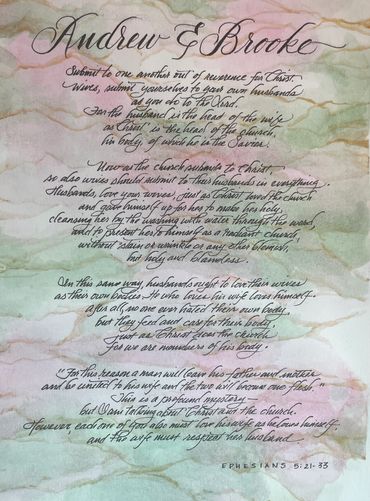 Andrew & Brooke
Submit to one another out of reverence for Christ.
Wives, submit yourselves to your own husbands
as you do to the Lord.
For the husband is the head of the wife
as Christ is the head of the church,
his body, of which he is the Savior.
Now as the church submits to Christ,
so also wives should submit to their husbands in everything.
Husbands, love your wives, just as Christ loved the church
and gave himself up for her to make her holy,
cleansing her by the washing with water through the word,
and to present her to himself as a radiant church,
without stain or wrinkle or any other blemish,
but holy and blameless.
In this same way, husbands ought to love their wives
as their own bodies. He who loves his wife loves himself.
After all, no one ever hated their own body,
but they feed and care for their body,
just as Christ does the church
for we are members of his body.
"For this reason a man will leave his father and mother
and be united to his wife and the two will become one flesh."
This is a profound mystery—
but I am talking about Christ and the church.
However, each one of you also must love his wife as he loves himself,
and the wife must respect her husband.
EPHESIANS 5:21-33